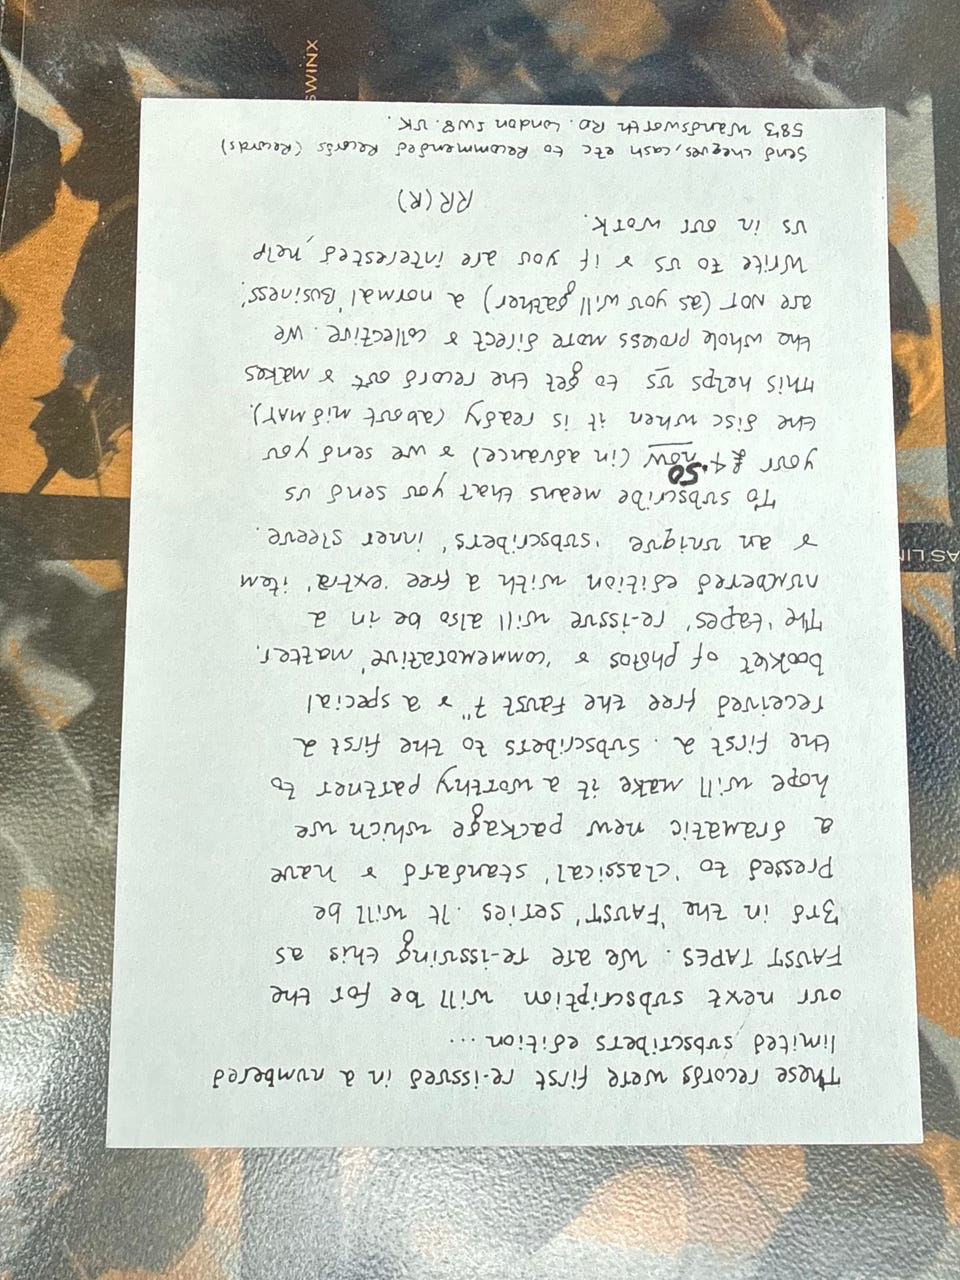 These records were first re-issued in a numbered
limited subscribers edition ...
our next subscription will be for the
FAUST TAPES. We are re-issuing this as
3rd in the 'FAUST' series. It will be
pressed to 'classical' standard & have
a dramatic new package which we
hope will make it a worthy partner to
the first 2. Subscribers to the first 2
received free the Faust 7" & a special
booklet of photos & 'commemorative' matter.
The 'tapes' re-issue will also be in a
numbered edition with a free 'extra' item
& an unique 'subscribers' inner sleeve.
To subscribe means that you send us
your £4.50 now (in advance) & we send you
the disc when it is ready (about mid MAY).
This helps us to get the record out & makes
the whole process more direct & collective. We
are NOT (as you will gather) a normal 'Business'.
Write to us & if you are interested, help
us in our work.
RR(R)
Send cheques, cash etc to Recommended Records (Records)
583 Wandsworth RD. London SW8. UK.
SWINX
AS LIN